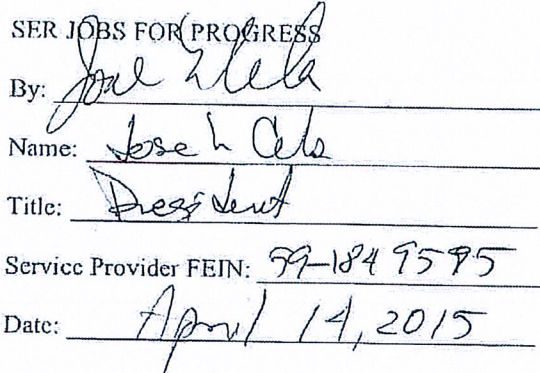 SER JOBS FOR PROGRESS
By:
Name: Jose L Cela
Title: President
Service Provider FEIN: 59-1849595
Date: April 14, 2015